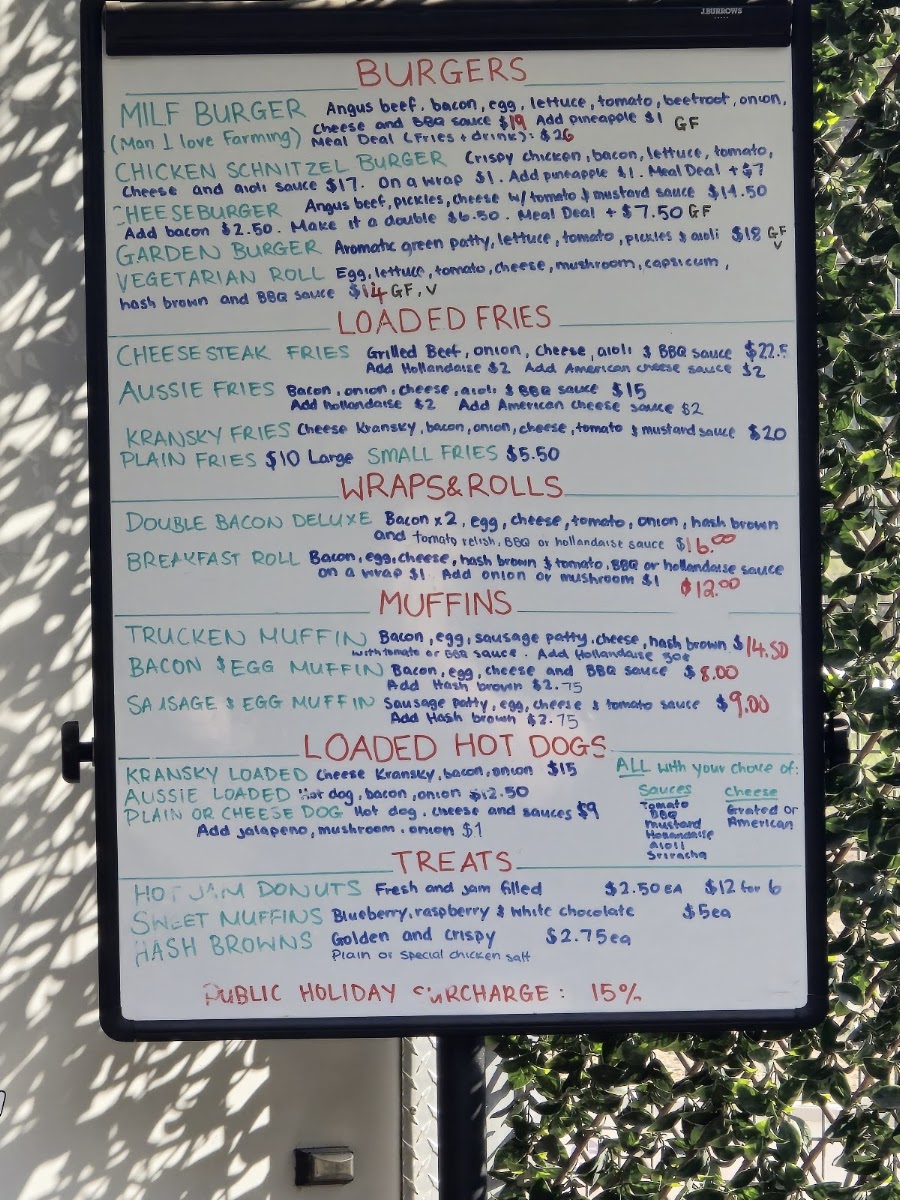 J.BURROWS
BURGERS
MILF BURGER Angus beef, bacon, egg, lettuce, tomato, beetroot, onion,
(Man I love Farming) Cheese and BBQ sauce $19 Add pineapple $1 GF
Meal Deal (Fries + drink): $26
CHICKEN SCHNITZEL BURGER Crispy chicken, bacon, lettuce, tomato,
Cheese and aioli sauce $17. On a wrap $1. Add pineapple $1. Meal Deal + $7
CHEESEBURGER Angus beef, pickles, cheese w/ tomato & mustard sauce $14.50
Add bacon $2.50. Make it a double $6.50. Meal Deal + $7.50 GF
GARDEN BURGER Aromatic green patty, lettuce, tomato, pickles & aioli $18 GF V
VEGETARIAN ROLL Egg, lettuce, tomato, cheese, mushroom, capsicum,
hash brown and BBQ sauce $14 GF, V
LOADED FRIES
CHEESESTEAK FRIES Grilled Beef, onion, cheese, aioli & BBQ sauce $22.5
Add Hollandaise $2 Add American cheese sauce $2
AUSSIE FRIES Bacon, onion, cheese, aioli & BBQ sauce $15
Add hollandaise $2 Add American cheese sauce $2
KRANSKY FRIES Cheese Kransky, bacon, onion, cheese, tomato & mustard sauce $20
PLAIN FRIES $10 Large SMALL FRIES $5.50
WRAPS&ROLLS
DOUBLE BACON DELUXE Bacon x2, egg, cheese, tomato, onion, hash brown
and tomato relish, BBQ or hollandaise sauce $16.00
BREAKFAST ROLL Bacon, egg, cheese, hash brown & tomato, BBQ or hollandaise sauce
on a wrap $1. Add onion or mushroom $1 $12.00
MUFFINS
TRUCKEN MUFFIN Bacon, egg, sausage patty, cheese, hash brown $14.50
with tomato or BBQ sauce. Add Hollandaise 50¢
BACON & EGG MUFFIN Bacon, egg, cheese and BBQ sauce $8.00
Add Hash brown $2.75
SAUSAGE & EGG MUFFIN Sausage patty, egg, cheese & tomato sauce $9.00
Add Hash brown $2.75
LOADED HOT DOGS
KRANSKY LOADED Cheese Kransky, bacon, onion $15
AUSSIE LOADED Hot dog, bacon, onion $12.50
PLAIN OR CHEESE DOG Hot dog. cheese and sauces $9
Add jalapeno, mushroom. onion $1
ALL with your choice of:
Sauces
Tomato
BBQ
Mustard
Hollandaise
Aioli
Sriracha
Cheese
Grated or
American
TREATS
HOT JAM DONUTS Fresh and jam filled $2.50 EA $12 for 6
SWEET MUFFINS Blueberry, raspberry & white chocolate $5ea
HASH BROWNS Golden and crispy $2.75ea
Plain or special chicken salt
PUBLIC HOLIDAY SURCHARGE: 15%